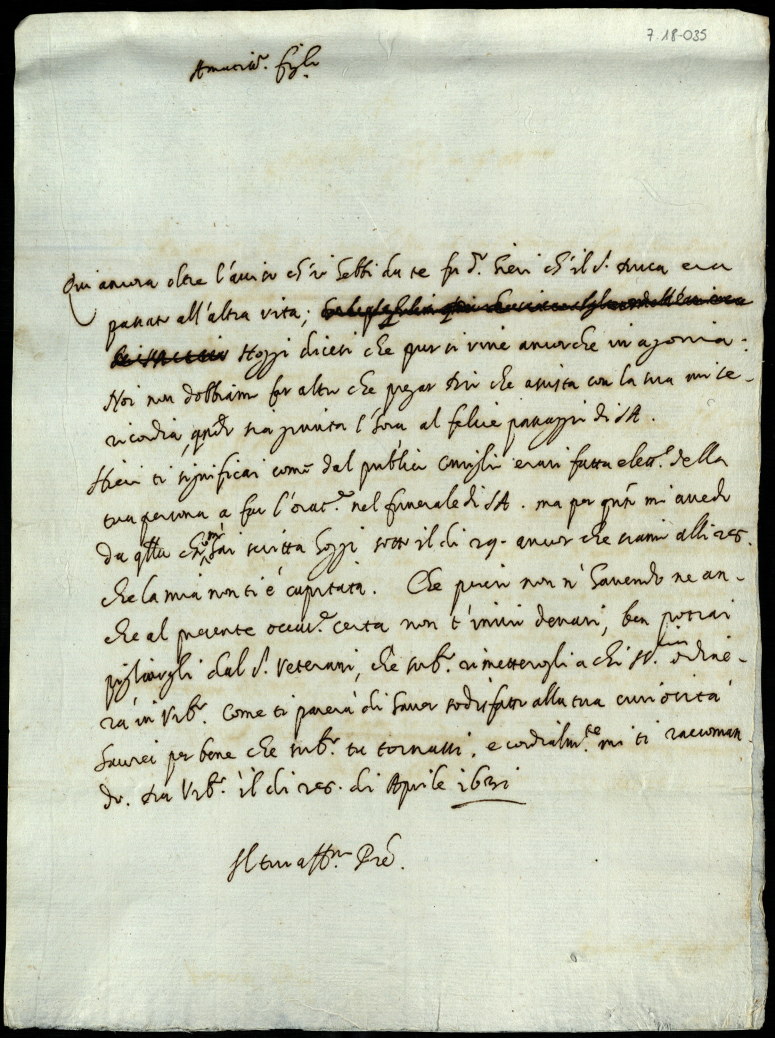 7.18-035
Amatis.º figl.º
Qui ancora oltre l'aviso ch'io hebbi da te fu d.º hieri ch'il S. Duca era
passato all'altra vita;
Hoggi dicesi che pur si vive ancorche in agonia:
Noi non dobbiam far altro che pregar Dio che assista con la sua mise-
ricordia, qndo sia giunta l'hora al felice passaggio di SA.
Hieri ti significai come dal publico consiglio erasi fatta elett.e della
tua persona a far l'orat.e nel funerale di SA. ma per qnto mi avedo
da qlla che hoggi sotto il di 29. ancor che siamo alli
che la mia non ti è capitata. Che perciò non n'havendo ne an-
che al presente occas.e certa non t'invio denari, ben potrai
pigliargli dal S. Veterani, che sub.º rimetterogli a chi ordine-
rà in Urb.º Come ti parerà di haver sodisfatto alla tua curiosità
haurei per bene che sub.º tu tornassi, e cordialm.te mi ti raccoman
do. Da Urb.º il di di Aprile 1631
Il tuo aff.mo Pre.